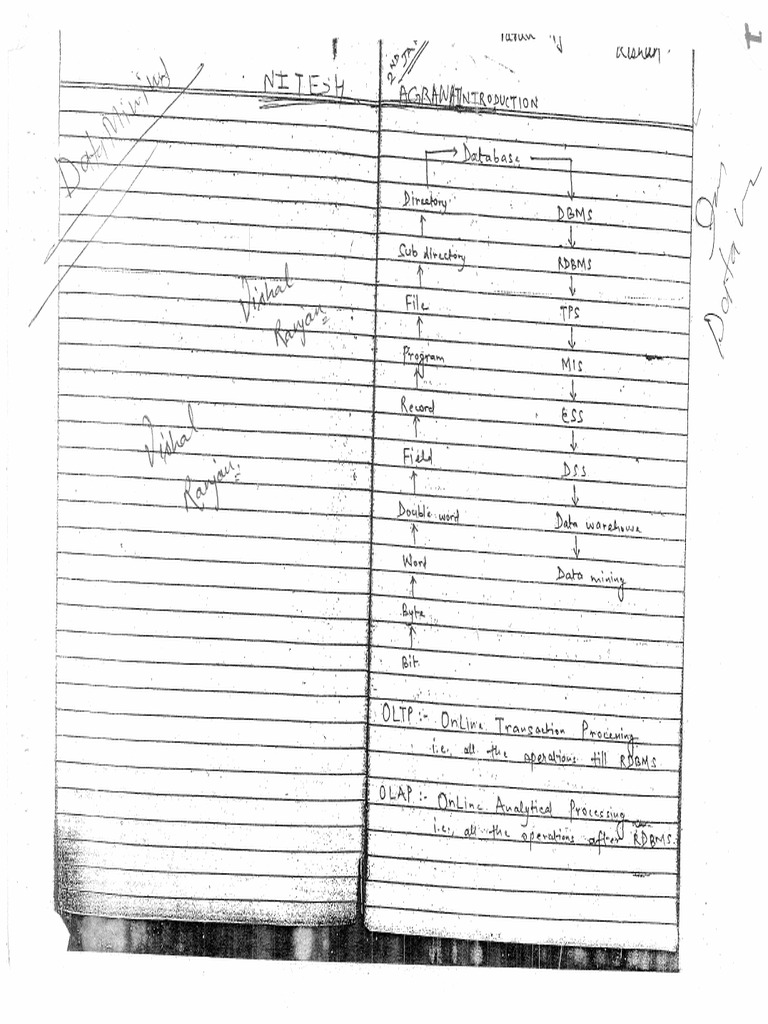 Data Mining
NITESH AGRAWAL
2ND JAN
Kishan
INTRODUCTION
Database
Directory
DBMS
Sub directory
RDBMS
File
TPS
Program
MIS
Record
ESS
Field
DSS
Double word
Data warehouse
Word
Data mining
Byte
Bit
OLTP :- OnLine Transaction Processing
i.e., all the operations till RDBMS.
OLAP :- OnLine Analytical Processing
i.e., all the operations after RDBMS.
Vishal
Ranjan
Vishal
Ranjan